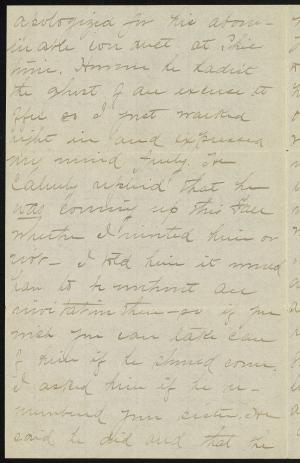 apologized for his abom-
inable conduct at this
time. Hmmm he hadn't
the ghost of an excuse to
offer so I just walked
right in and expressed
my mind freely. He
calmly replied that he
was coming up this Fall
whether I invited him or
not - I told him it would
have to be without an
invitation then - so if you
wish you can take care
of him if he should come.
I asked him if he re-
membered your sister. He
said he did and that he